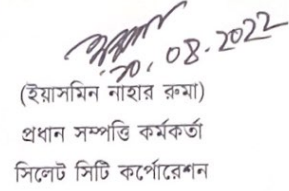 ২০.০৮.২০২২
(ইয়াসমিন নাহার রুমা)
প্রধান সম্পত্তি কর্মকর্তা
সিলেট সিটি কর্পোরেশন